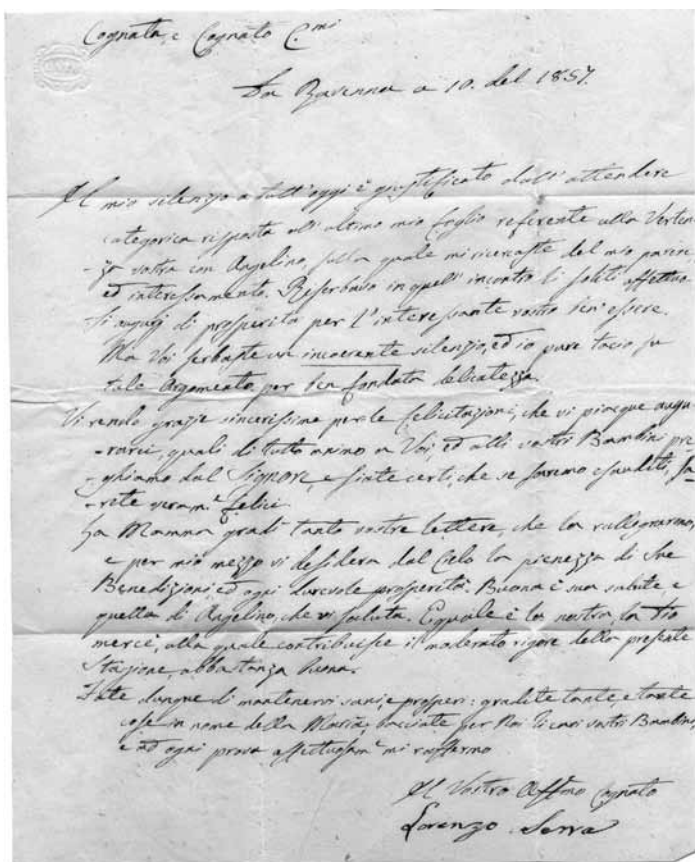 Cognata, e Cognato C.mi
Da Ravenna a 10. del 1857.
Il mio silenzo a tutt'oggi è giustificato dall'attendere
categorica risposta all'ultimo mio foglio referente alla Verten
-za vostra con Angelino, sulla quale mi ricercaste del mio parere,
ed interessamento. Riserbavo in quell'incontro li soliti affettuo
si augurj di prosperità per l'interessante vostro ben essere.
Ma Voi serbaste un incoerente silenzio, ed io pure tacio su
tale Argomento per ben fondata delicatezza.
Vi rendo grazie sincerissime per le felicitazioni, che vi piacque augu
-rarci, quali di tutto animo a Voi, ed alli vostri Bambini pre
-ghiamo dal Signore, e siate certi, che se saremo esauditi, sa
-rete veram.e felici.
La Mamma gradì tanto vostre lettere, che la rallegrarono,
e per mio mezzo vi desidera dal Cielo la pienezza di Sue
Benedizioni ed ogni durevole prosperità. Buona è sua salute, e
quella di Angelino, che vi saluta. Eguale è la nostra, la Dio
mercè, alla quale contribuisce il moderato rigore della presente
Stagione, abbastanza buona.
Fate dunque di mantenervi sani, e prosperi: gradite tante, e tante
cose in nome della Maria; bacciate per Noi li cari vostri Bambini,
e ad ogni prova affettuosam.e mi raffermo
Il Vostro Aff.mo Cognato
Lorenzo Serra